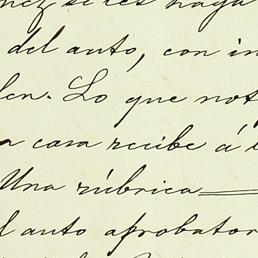 se les haga
del auto, con in
len. Lo que not
a casa recibe á
Una rúbrica
l auto aprobator